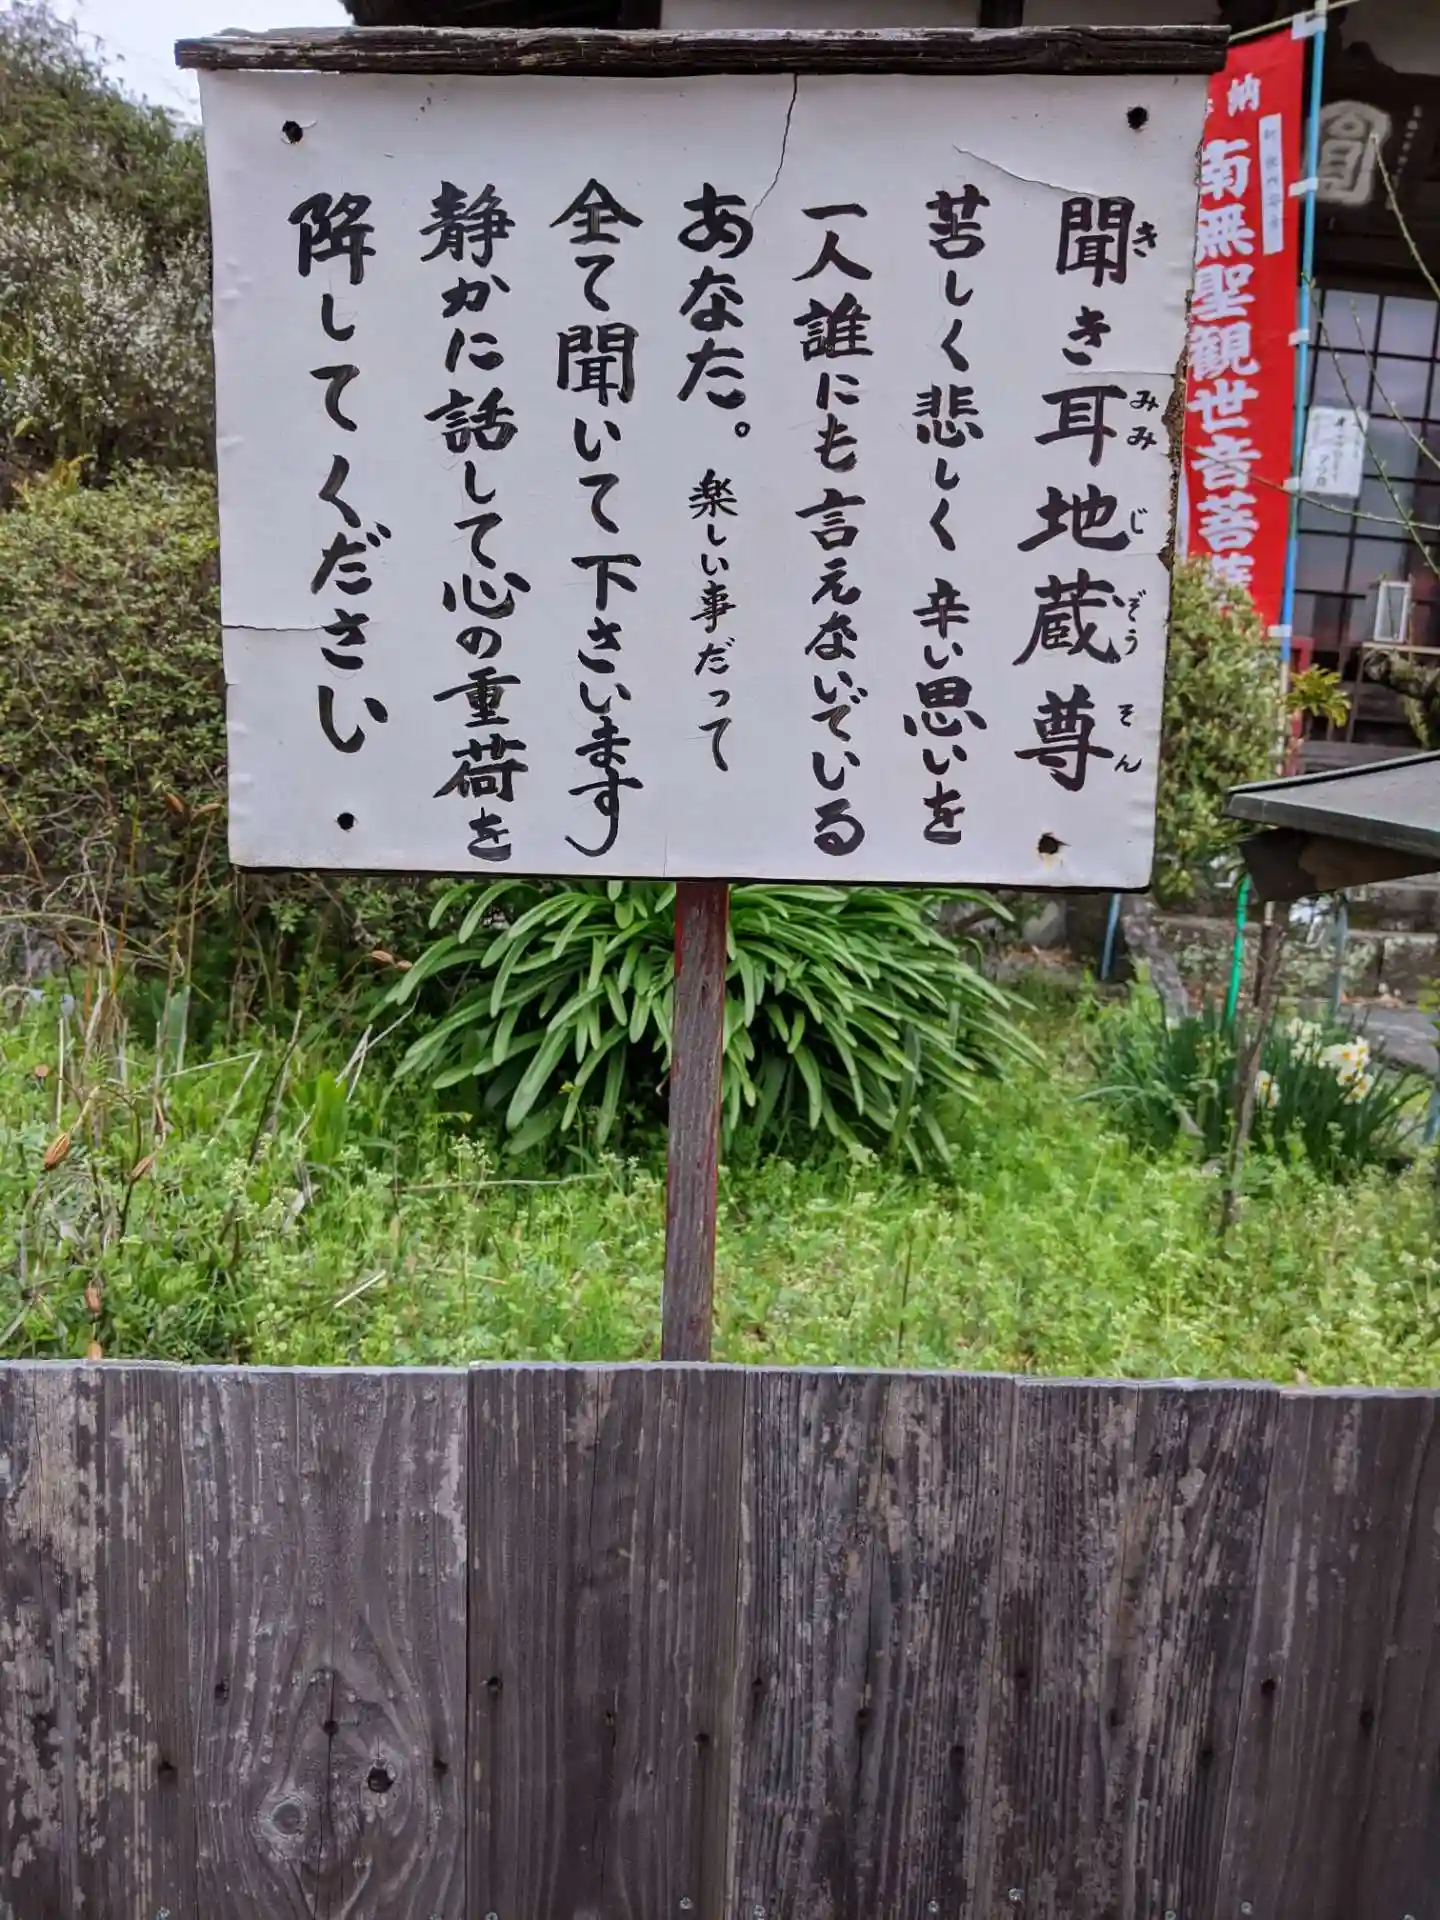 聞き耳地蔵尊
き みみ じ ぞう そん
苦しく悲しく 辛い思いを
一人誰にも言えないでいる
あなた。 楽しい事だって
全て聞いて下さいます
静かに話して心の重荷を
降してください
納
南無聖観世音菩薩